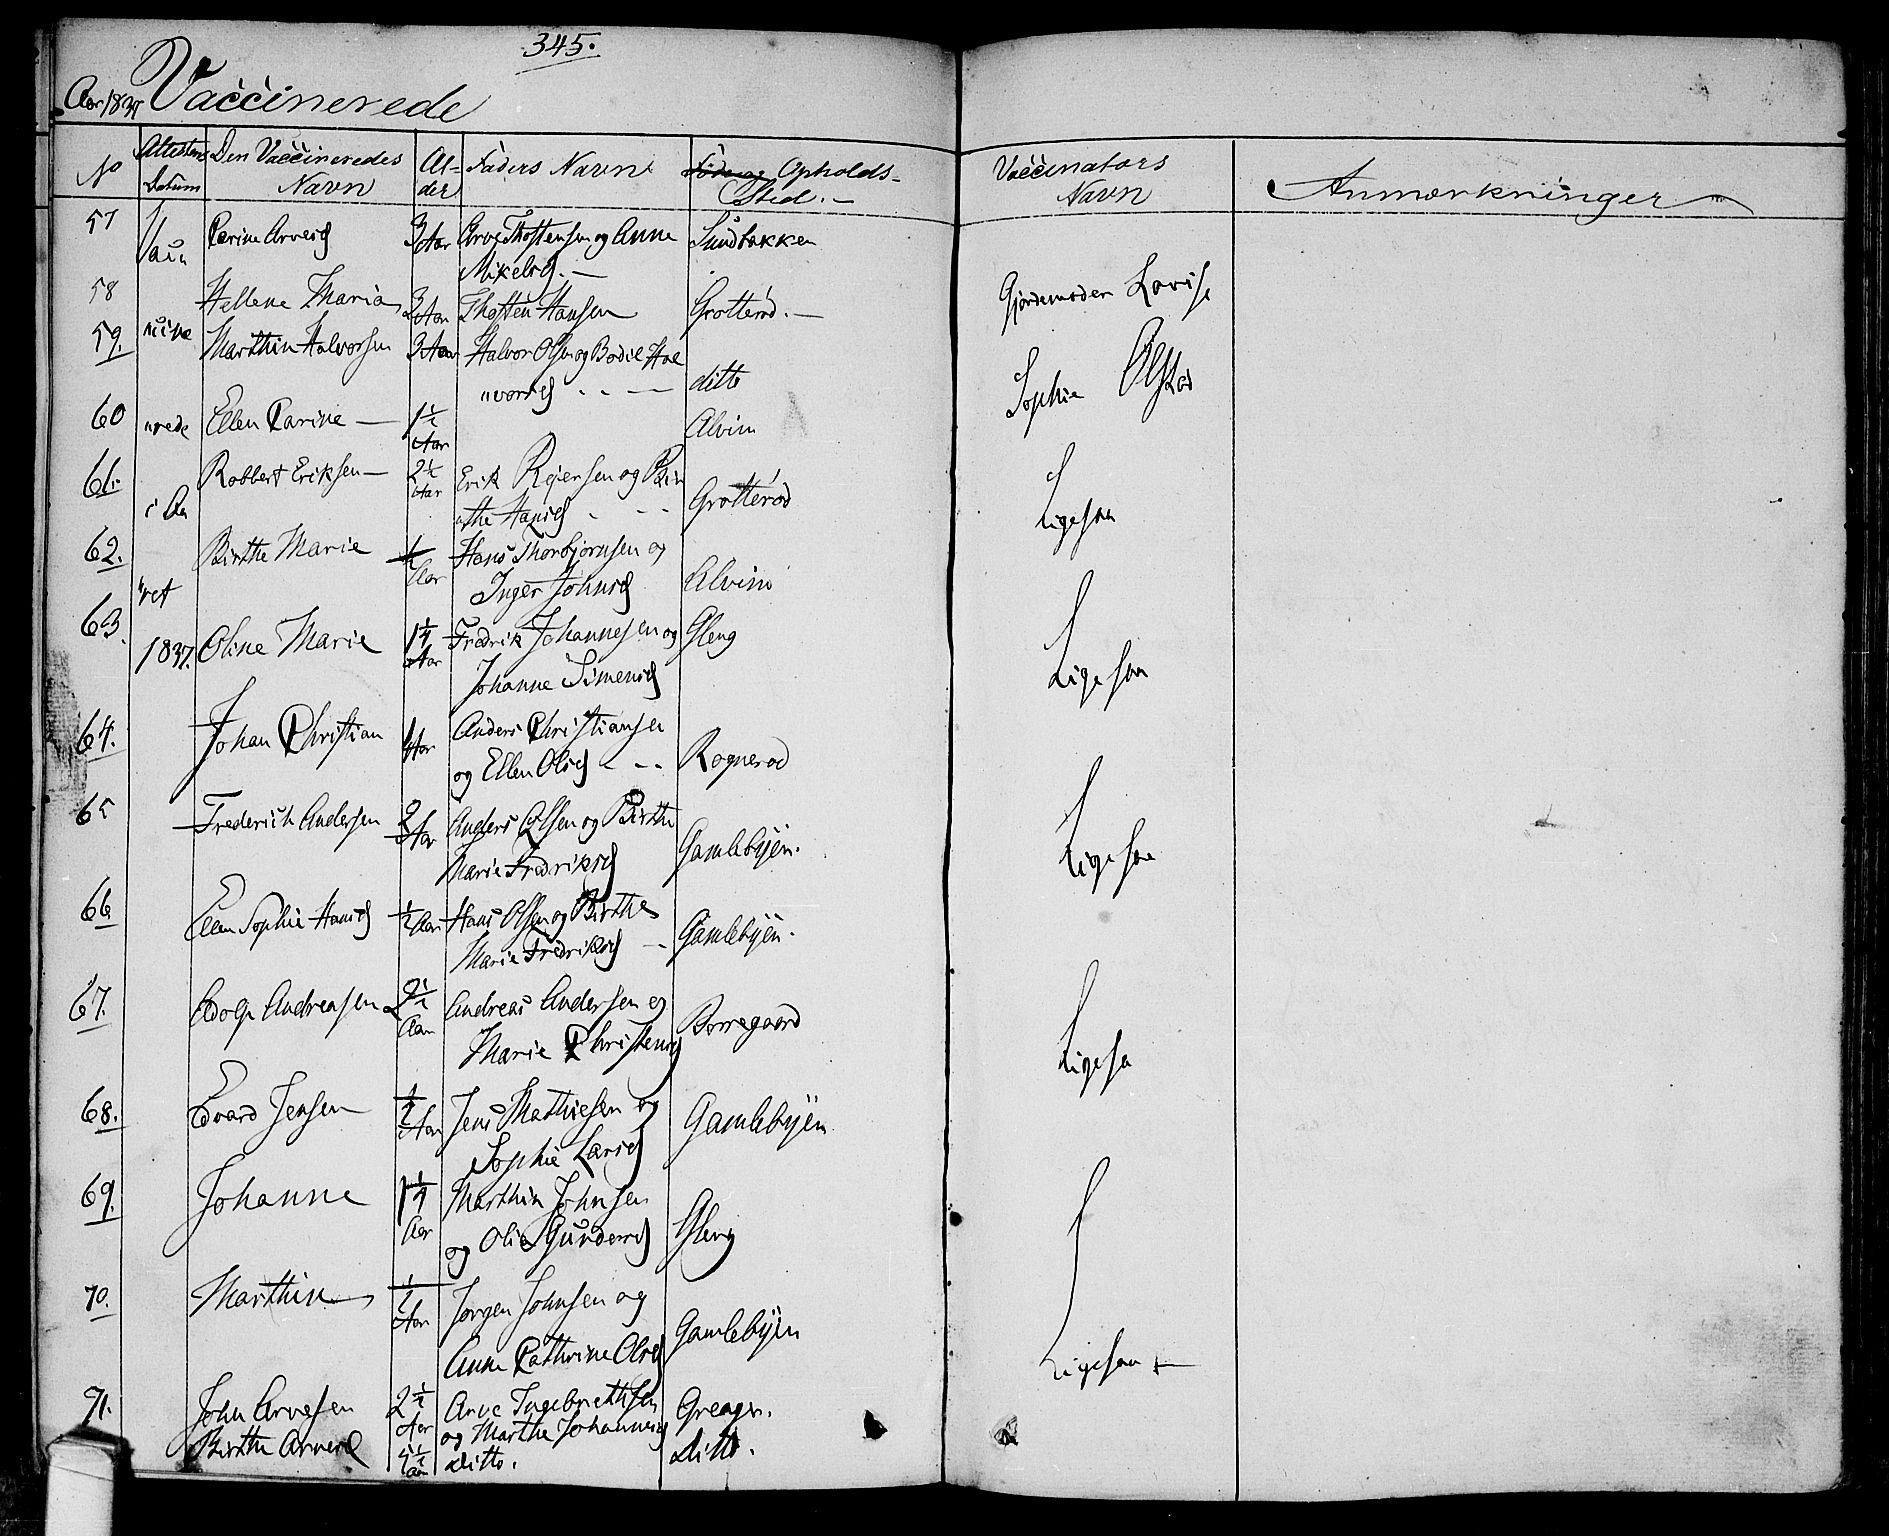 345.
Aar 1837 Vaccinerede
No Attestens Datum Den Vaccineredes Navn Alder Faders Navn Opholds-Sted. Vaccinators Navn Anmærkninger
57 Vac Carine Arvesd 3 Aar Arve Thostensen og Anne Sundbakken
Mikelsd. —
58 Hellene Maria 3 Aar Thosten Hansen Grotterød. — Gjordemoder Lovise
59. cine Marthin Halvorsen 3 Aar Halvor Olsen og Bodil Hal
vorsd ditto Sophie
60 rede Ellen Carine — 1½ Aar Alvim
61. i Aa Robbert Eriksen — 2½ Aar Erik Rejersen og Bir
the Hansd Grotterød Ligesaa
62. Birthe Marie ½ Aar Hans Thorbjørnsen og
ret Inger Johnsd Alvim
63. 1837. Oline Marie 1¼ Aar Fredrik Johannesen og Gleng
Johanne Simensd Ligesaa
64. Johan Christian Aar Anders Christiansen
og Ellen Olsd Rognerød
65 Frederich Andersen 2 Aar Anders Olsen og Birthe
Marie Fredriksd Gamlebyen. Ligesaa
66 Ellen Sophie Hansd ½ Aar Hans Olsen og Birthe
Marie Fredriksd — Gamlebyen.
67. Adolp Andreasen 2½ Aar Andreas Andersen og
Marie Christensd Borregaard Ligesa
68. Edvard Jensen ½ Aar Jens Mathiesen og Gamlebyen
Sophie Larsd
69. Johanne 1¼ Aar Marthin Johnsen
og Olia Gundersd Gleng
70. Marthin ½ Aar Jørgen Johnsen og
Anne Cathrine Olsd Gamlebyen Ligesaa
71. John Arvesen 2½ Aar Arve Ingebrethsen Greager.
og Marthe Johannesd
Birthe Arvesd Aar ditto. Ditto.